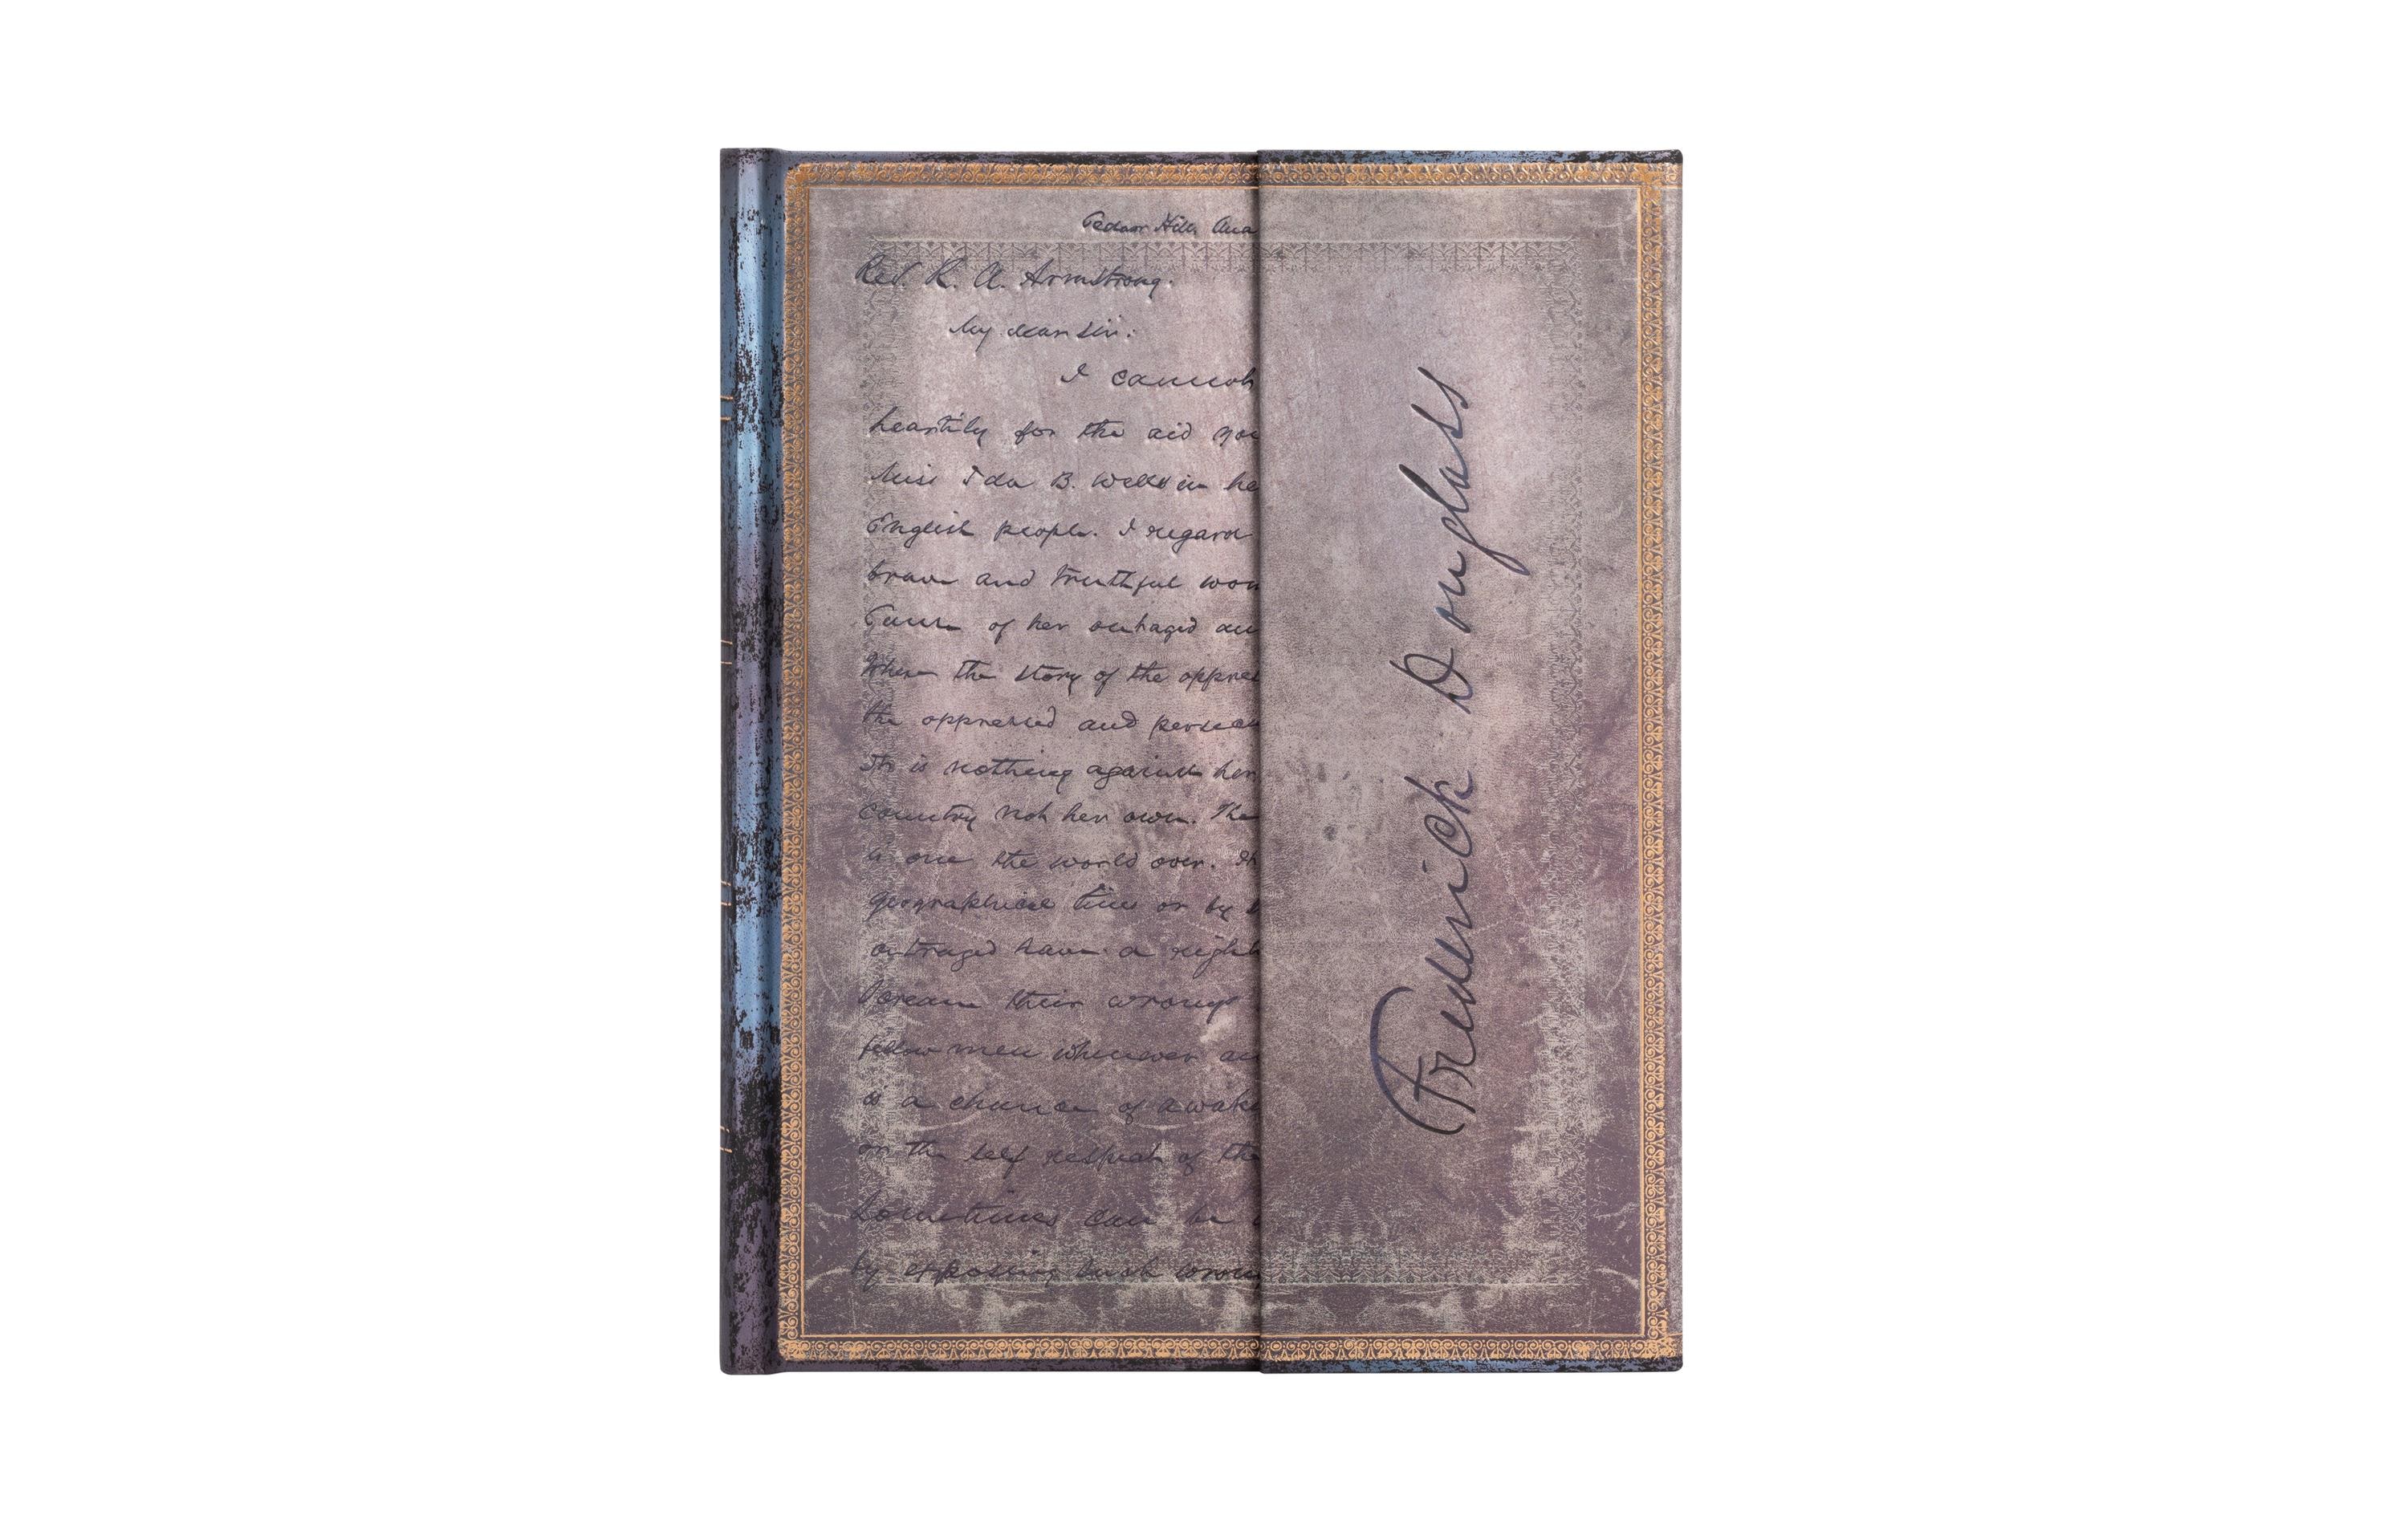 Cedar Hill, Ana
Rev. R. A. Armstrong.
My dear Sir:
I cannot
heartily for the aid you
Miss Ida B. Wells in he
English people. I regard
brave and truthful wom
Cause of her outraged an
Where the story of the oppres
the oppressed and persecu
It is nothing against her
country not her own. The
is one the world over. It
geographical lines or by
outraged have a right
their wrongs
fellow men whenever an
is a chance of awake
or the self respect of the
Sometimes can be
by exposing such wrong
Frederick Douglass